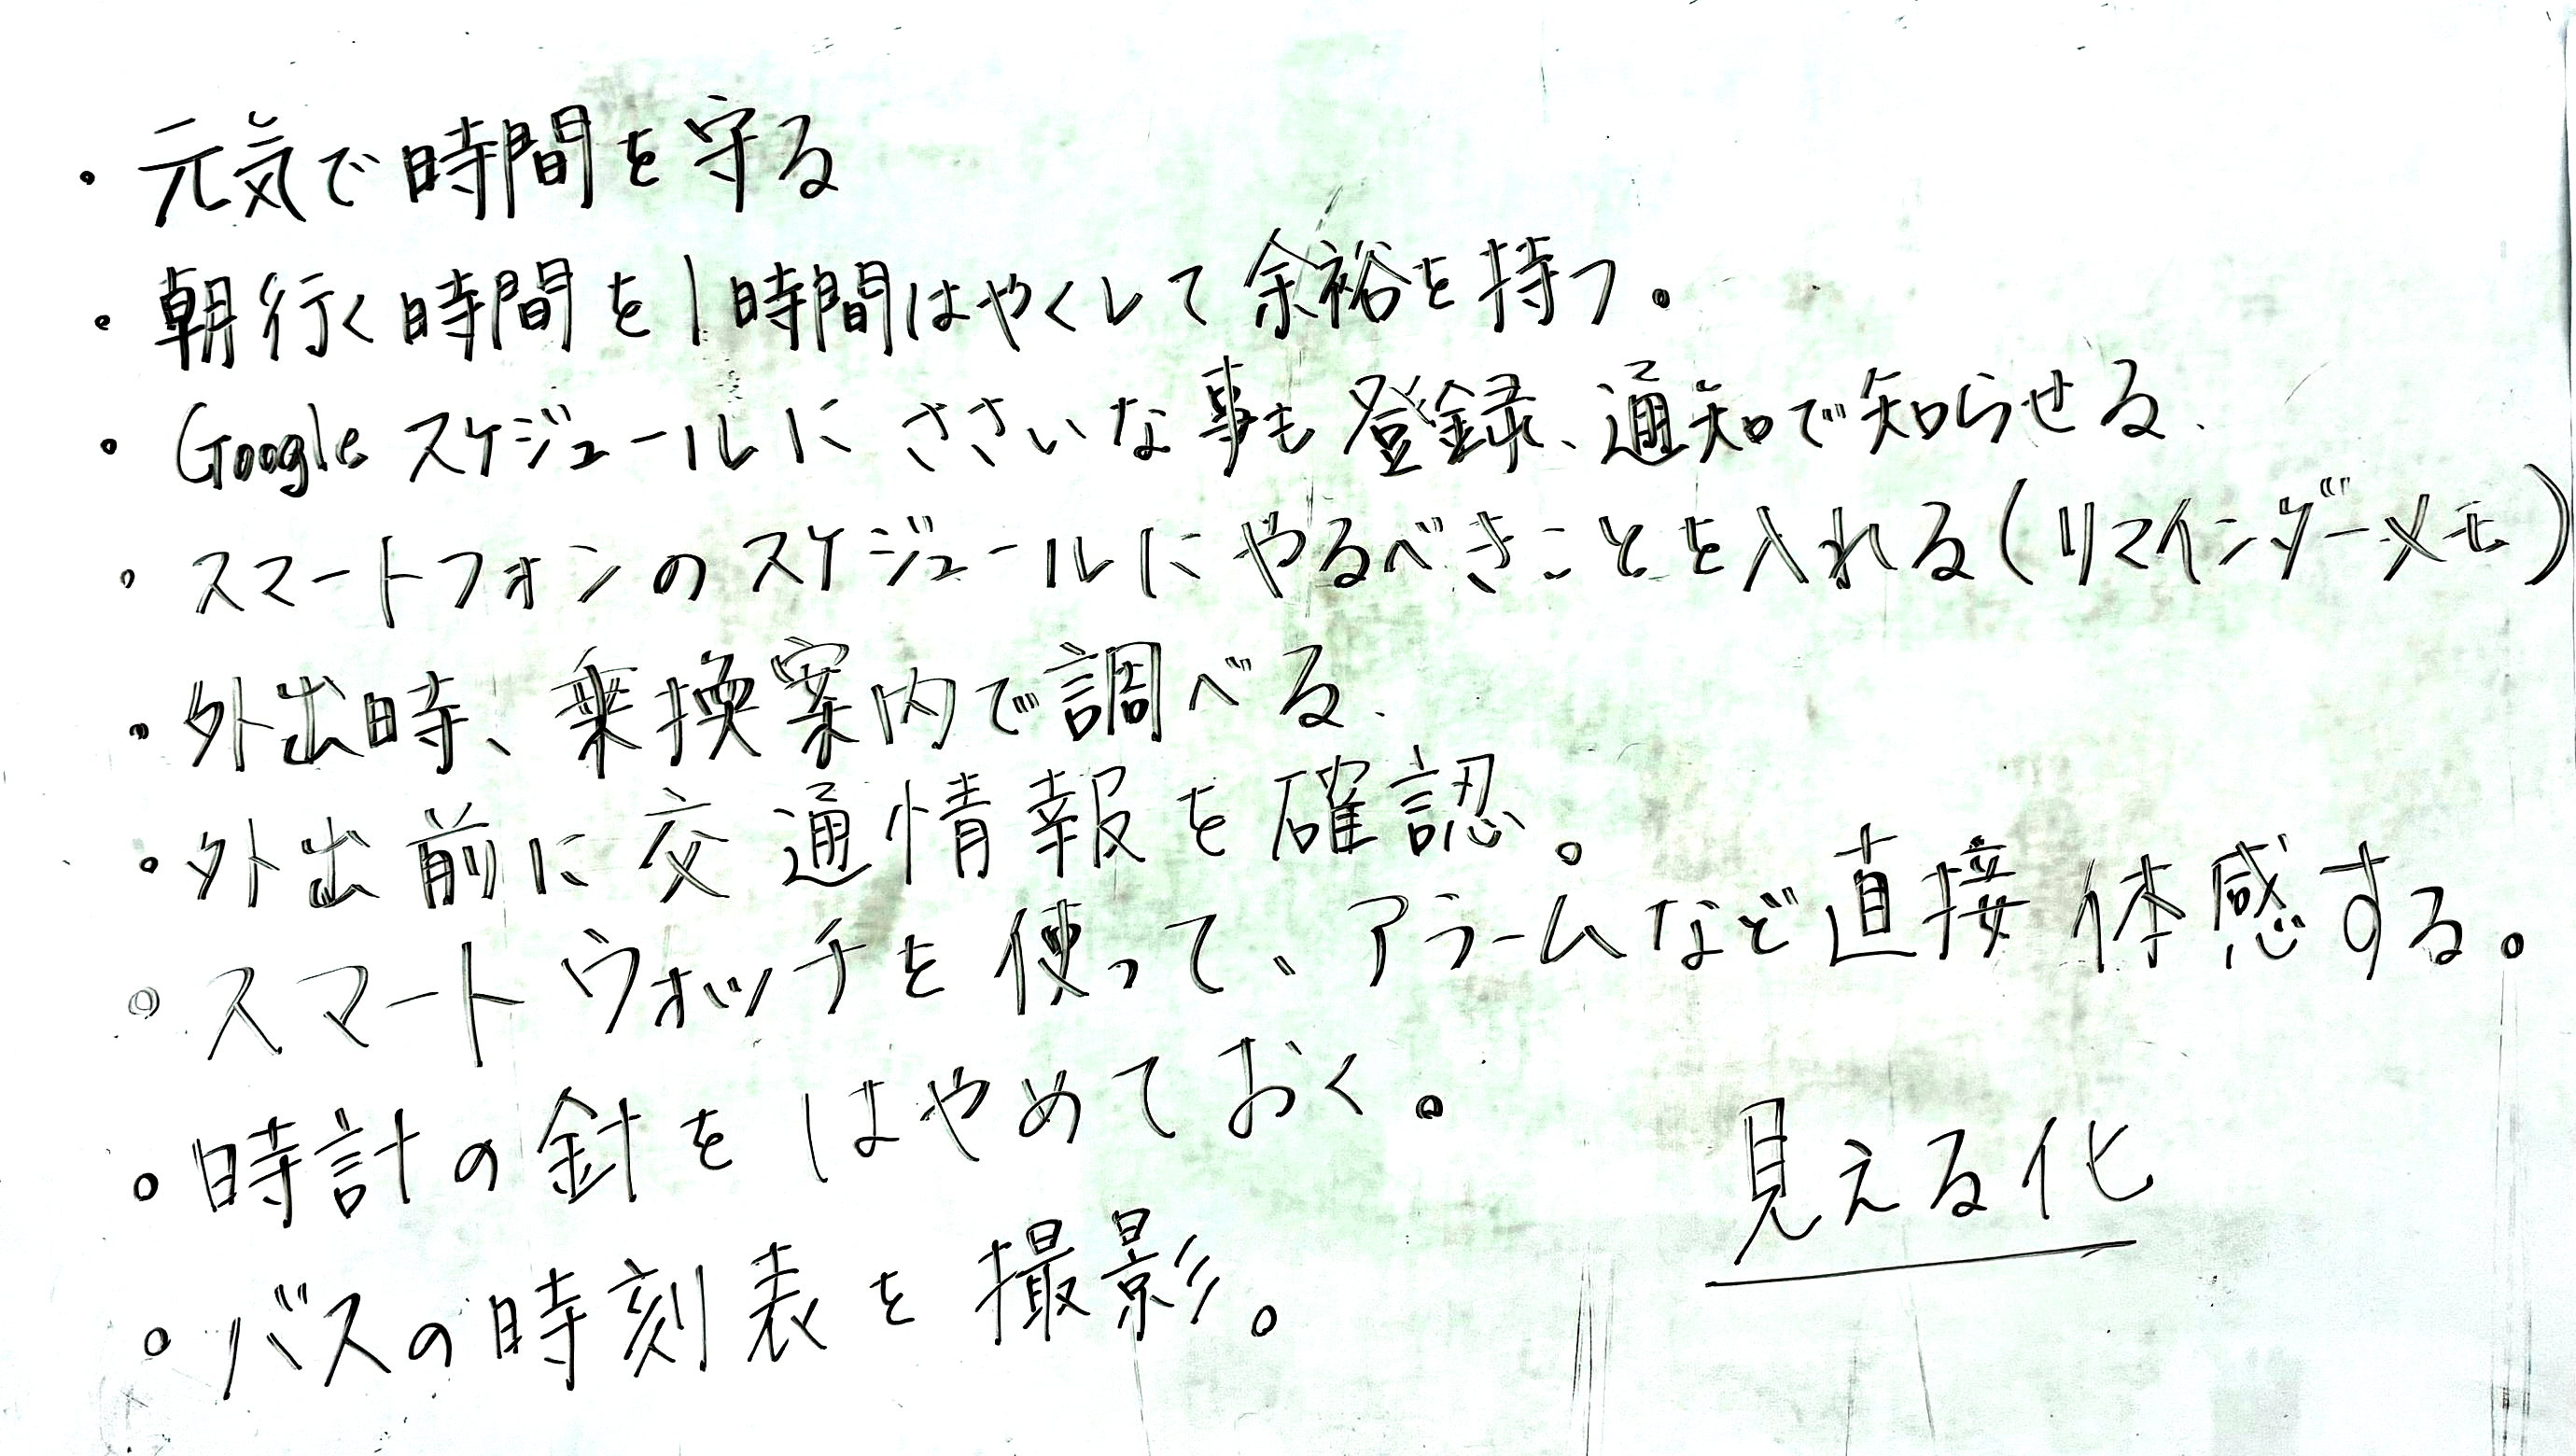 ・元気で時間を守る
・朝行く時間を1時間はやくして余裕を持つ。
・Googleスケジュールにささいな事も登録、通知で知らせる、
・スマートフォンのスケジュールにやるべきことを入れる(リマインダーメモ)
・外出時、乗換案内で調べる、
・外出前に交通情報を確認。
・スマートウォッチを使って、アラームなど直接体感する。
・時計の針をはやめておく。
見える化
・バスの時刻表を撮影。